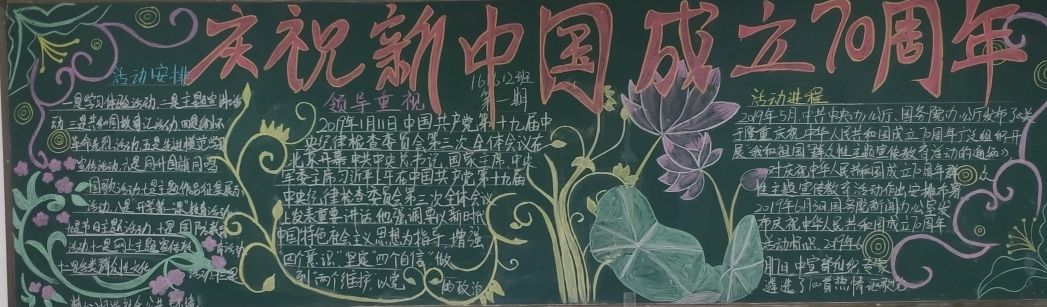 庆祝新中国成立70周年
16.6.12班
第一期
活动安排
一是学习体验活动 二是主题宣讲活
动 三是共和国教育汇活动 四是缅怀
革命先烈活动 五是先进模范学习
宣传活动 六是同升国旗同唱
国歌活动 七是主题作品征集展示
活动 八是"开学第一课"教育活动
假节日主题活动 十是国防教育
活动 十一是网上主题宣传教育活动
十二是各类群众性文化活动
领导重视
2019年1月11日中国共产党第十九届中
央纪律检查委员会第三次全体会议在
北京开幕 中共中央总书记,国家主席,中央
军委主席习近平上午在中国共产党第十九届
中央纪律检查委员会第三次全体会议
上发表重要讲话 他强调要以新时代
中国特色社会主义思想为指导,增强
"四个意识"坚定"四个自信"做
到"两个维护",以党的政治
活动进程
2019年5月,中共中央办公厅、国务院办公厅发布了《关
于隆重庆祝中华人民共和国成立70周年广泛组织开
展"我和祖国"群众性主题宣传教育活动的通知》
对庆祝中华人民共和国成立70周年群众
性主题宣传教育活动作出安排部署
2019年6月3日国务院新闻办公室发
布庆祝中华人民共和国成立70周年
活动标识 2019年6
月17日,中宣部组织专家
遴选了100首